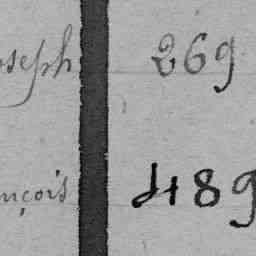 oseph 269
nçois 489